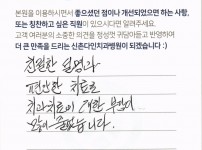 본원을 이용하시면서 좋으셨던 점이나 개선되었으면 하는 사항,
또는 칭찬하고 싶은 직원이 있으시다면 알려주세요.
고객 여러분의 소중한 의견을 정성껏 귀담아듣고 반영하여
더 큰 만족을 드리는 신촌다인치과병원이 되겠습니다 :)
친절한 설명과
편안한 치료로
치과치료에 대한 부담이
많이 줄었습니다.